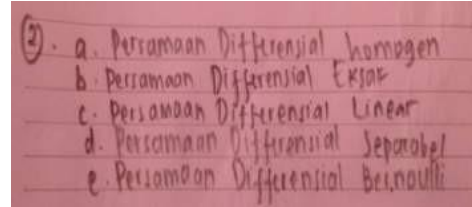 2. a. Persamaan Differensial homogen
b. Persamaan Differensial Eksak
c. Persamaan Differensial Linear
d. Persamaan Differensial Separabel
e. Persamaan Differensial Bernoulli